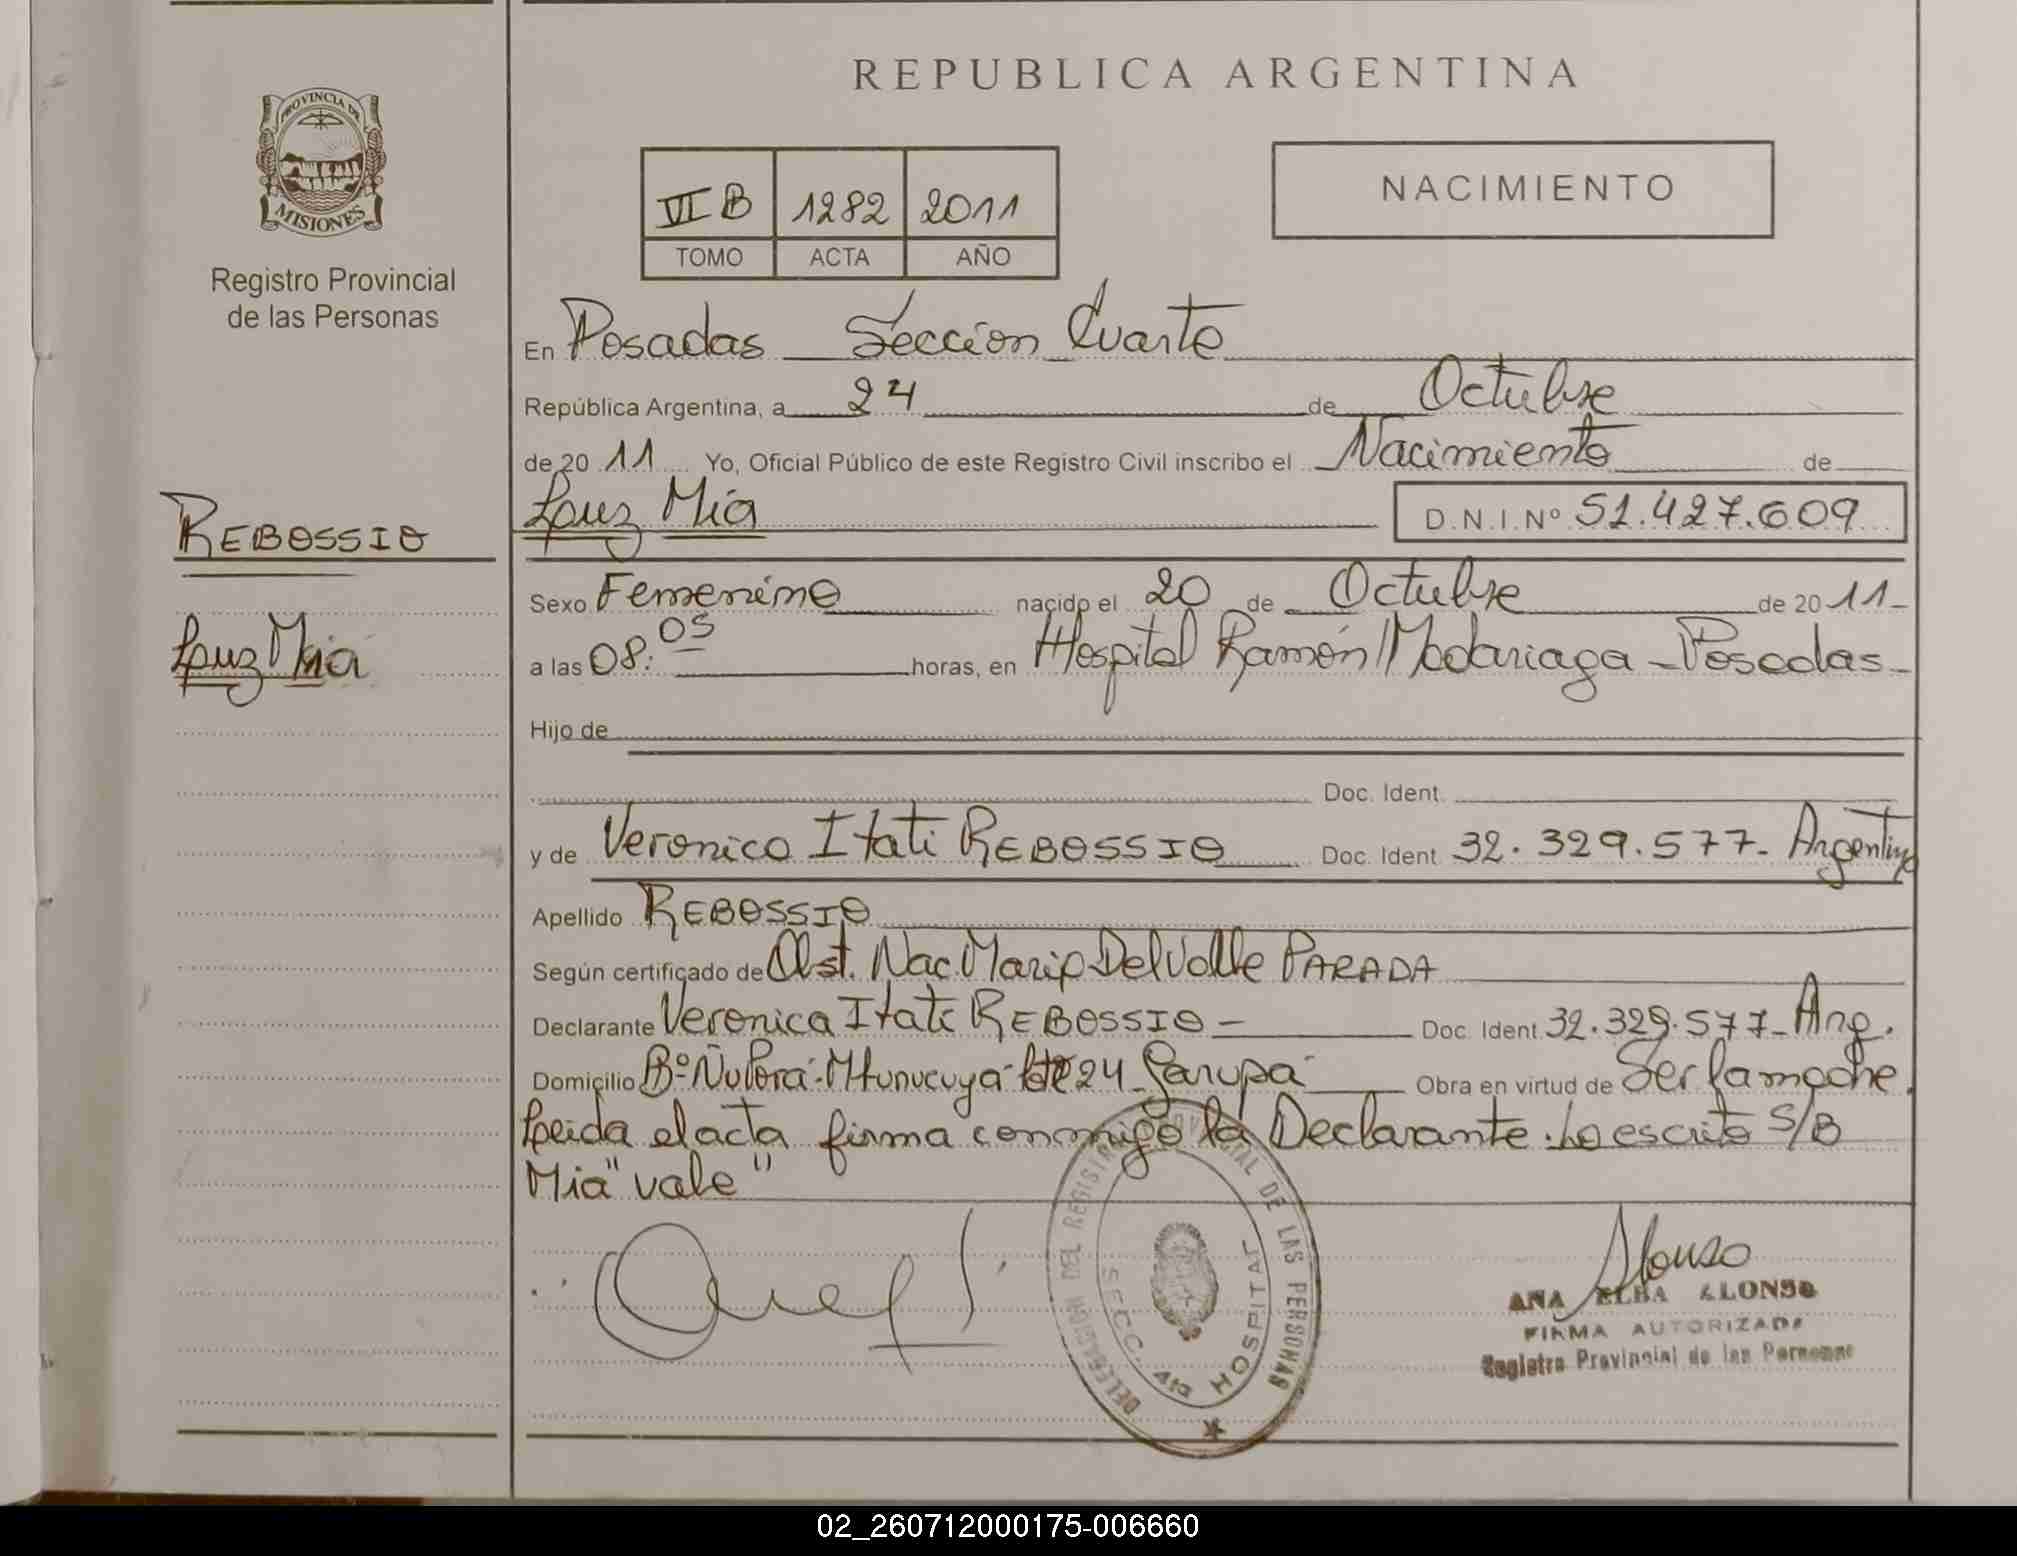 REPUBLICA ARGENTINA
PROVINCIA DE
MISIONES
Registro Provincial
de las Personas
VI B 1282 2011
TOMO ACTA AÑO
NACIMIENTO
En Posadas Sección Cuarta
República Argentina, a 24 de Octubre
de 2011 Yo, Oficial Público de este Registro Civil inscribo el Nacimiento de
Luz Mia D.N.I. Nº 51.427.609
REBOSSIO
Luz Mia
Sexo Femenino nacido el 20 de Octubre de 2011-
a las 08:05 horas, en Hospital Ramón Madariaga - Posadas-
Hijo de
Doc. Ident.
y de Veronica Itati REBOSSIO Doc. Ident 32.329.577- Argentina
Apellido REBOSSIO
Según certificado de Obst. Nac. Maria Del Valle PARADA
Declarante Veronica Itati REBOSSIO - Doc. Ident. 32.329.577- Arg.
Domicilio Bº Ñu Porá - 24 Garupá Obra en virtud de Ser la madre.
Leida el acta firma conmigo la Declarante. Lo escrito S/B
Mia "vale"
DELEGACION DEL REGISTRO PROVINCIAL DE LAS PERSONAS
SECC. 4ta HOSPITAL
Alonso
ANA ELBA ALONSO
FIRMA AUTORIZADA
Registro Provincial de las Personas
02_260712000175-006660